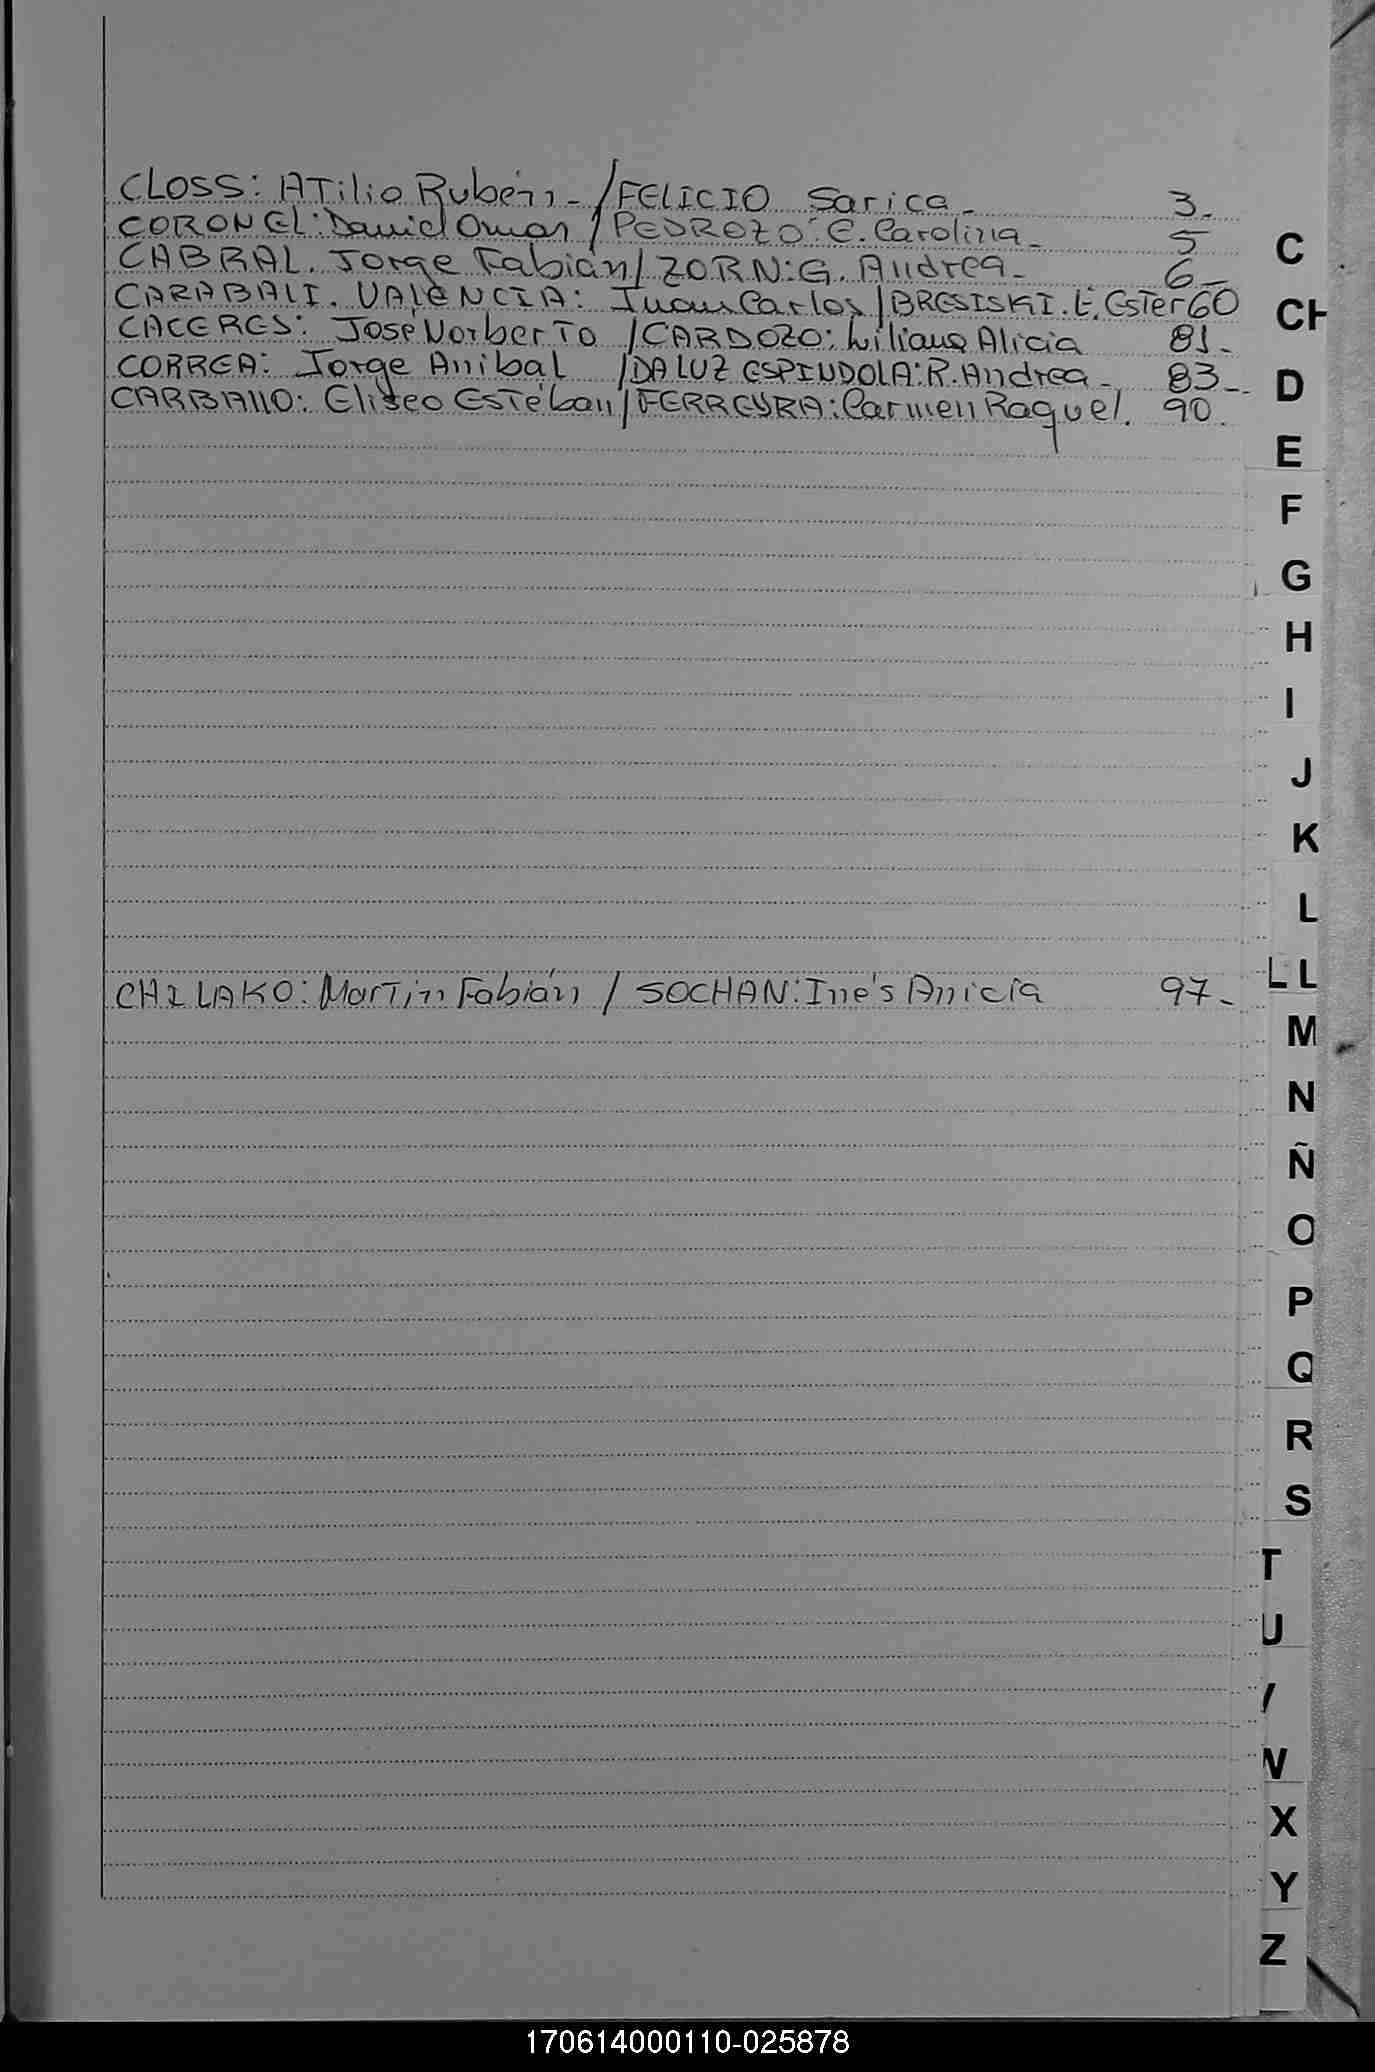 CLOSS: ATilio Rubén - / FELICIO Sarica - 3.
CORONEL: Daniel Omar / PEDROZO: E. Carolina - 5
CABRAL. Jorge Fabián / ZORN: G. Andrea - 6-
CARABALI. VALENCIA: Juan Carlos / BRESISKI. E. Ester 60
CACERES: José Norberto / CARDOZO: Liliana Alicia 81.
CORREA: Jorge Anibal / DA LUZ ESPINDOLA: R. Andrea - 83-
CARBAllO: Eliseo Esteban / FERREYRA: Carmen Raquel. 90.
CHILAKO: Martin Fabián / SOCHAN: Inés Anicia 97-
C
CH
D
E
F
G
H
I
J
K
L
LL
M
N
Ñ
O
P
Q
R
S
T
U
V
W
X
Y
Z
170614000110-025878